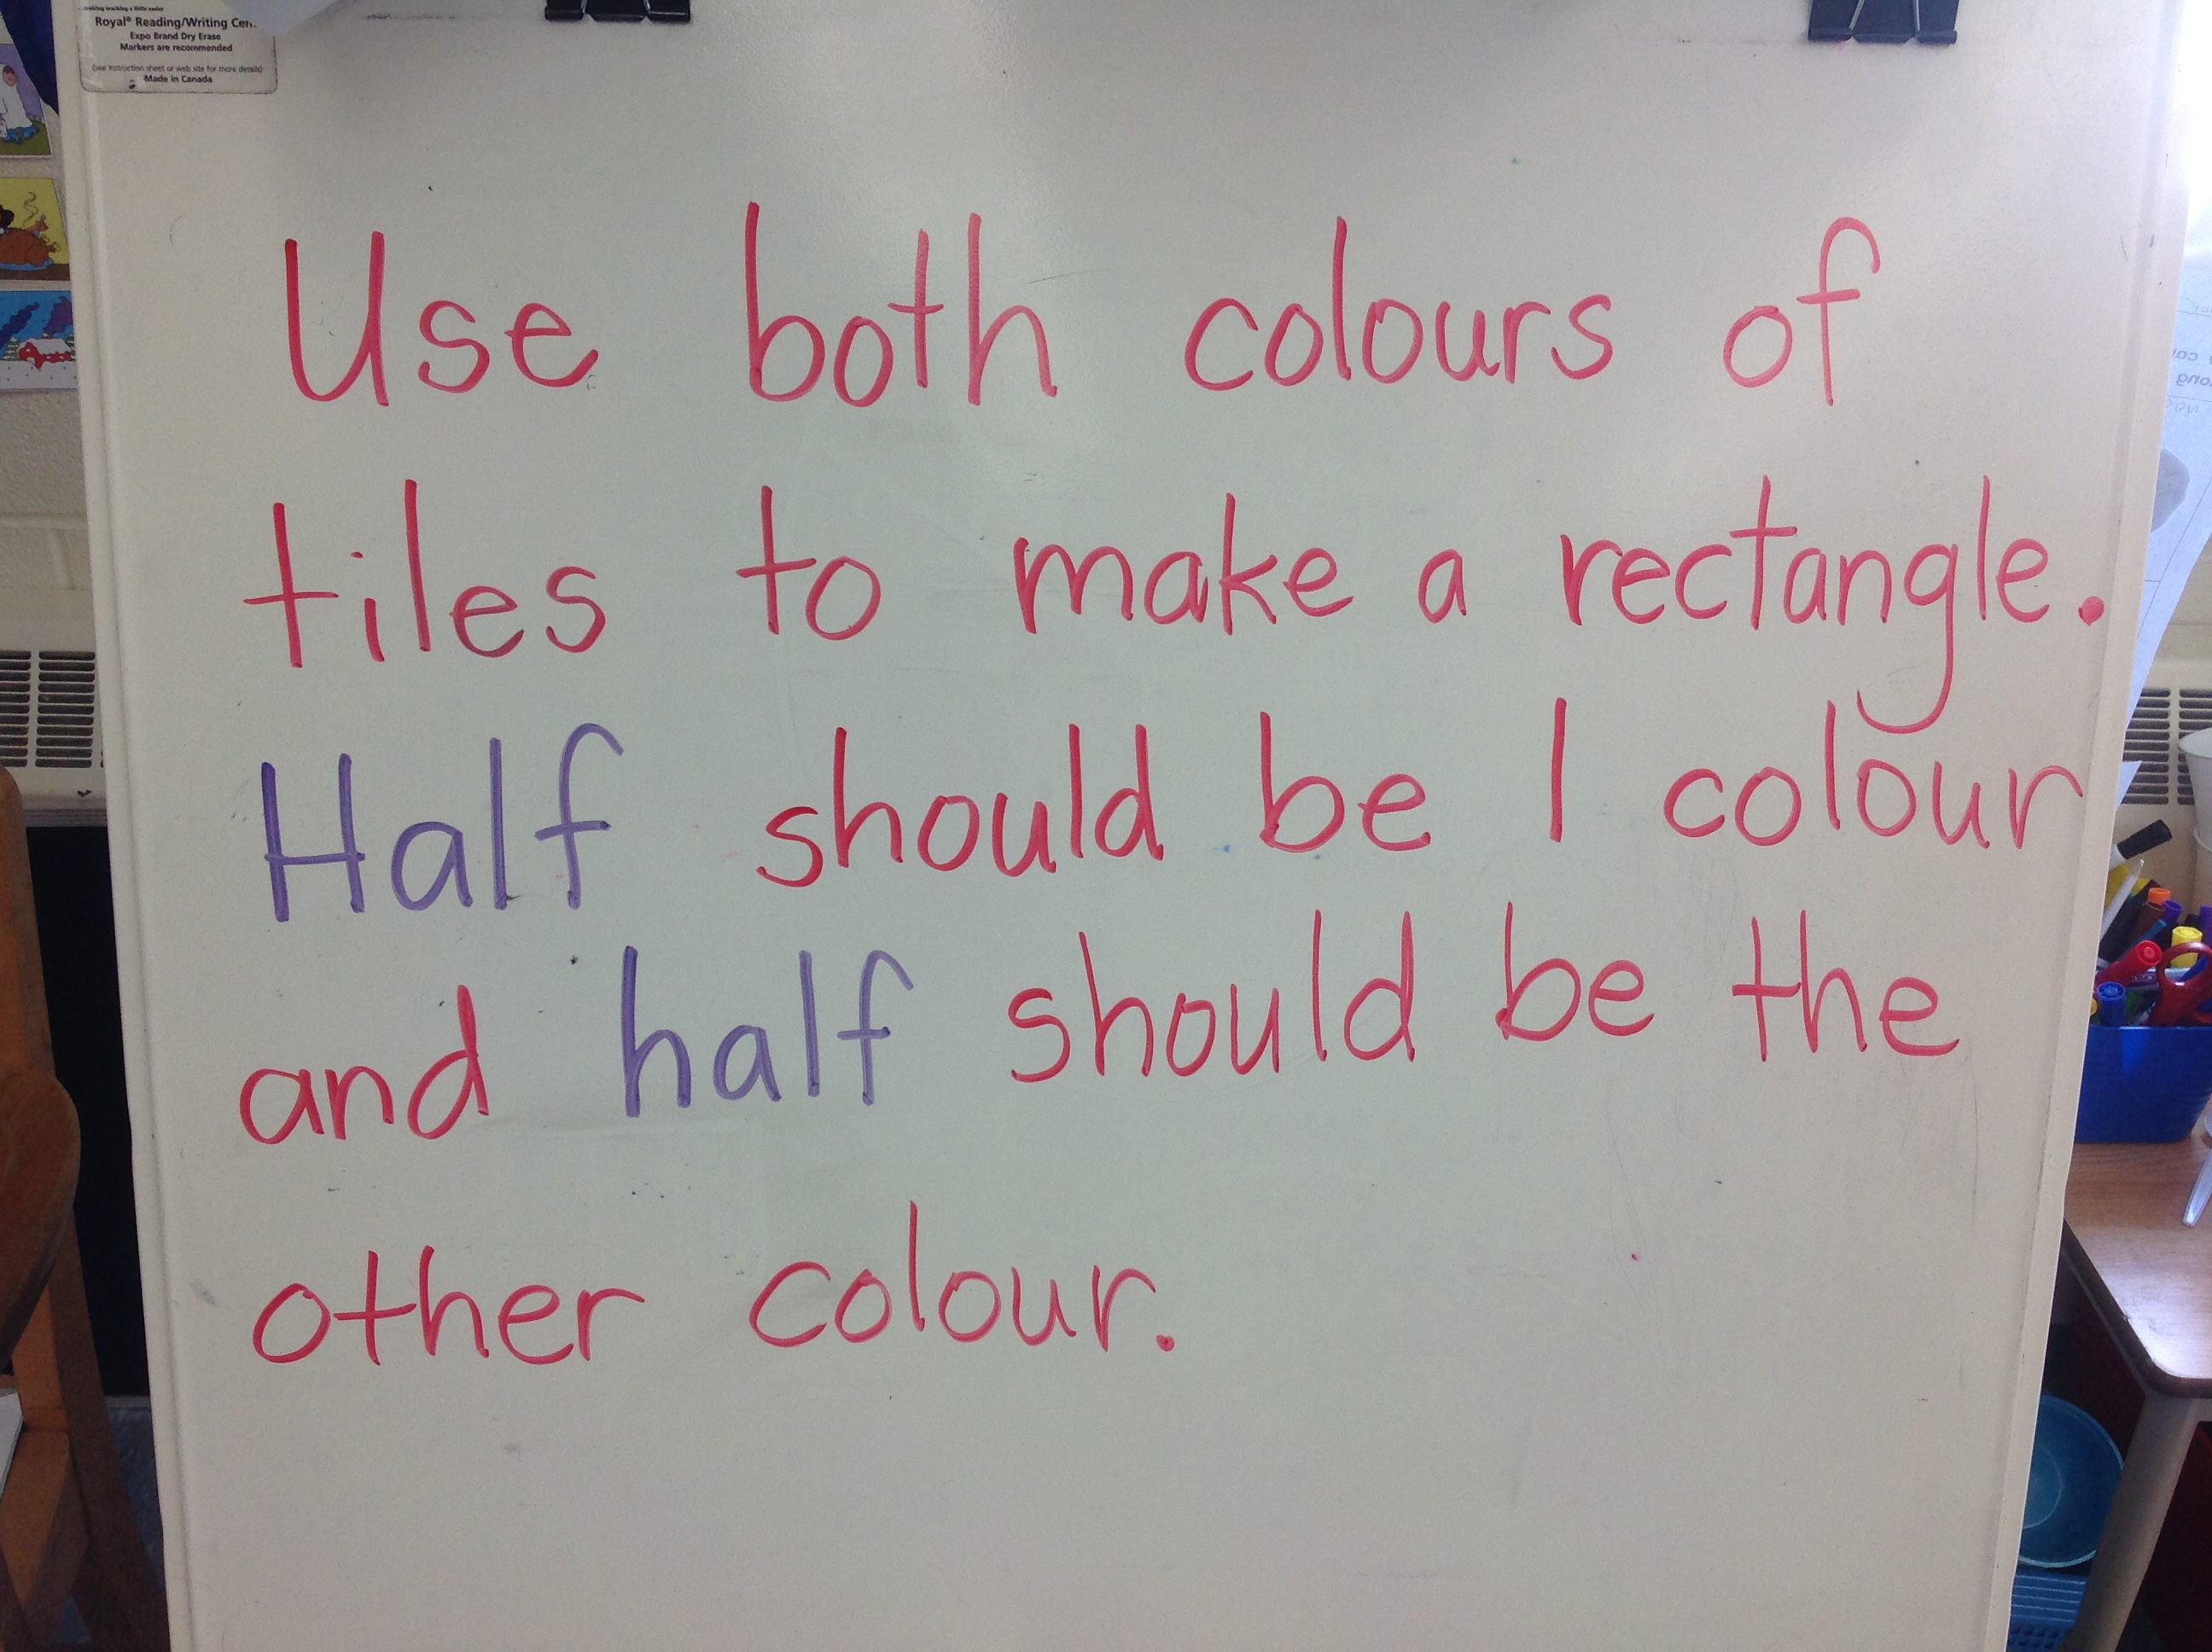 Royal® Reading/Writing Cen
Expo Brand Dry Erase
Markers are recommended
(see instruction sheet or web site for more details)
Made in Canada
Use both colours of
tiles to make a rectangle.
Half should be 1 colour
and half should be the
other colour.